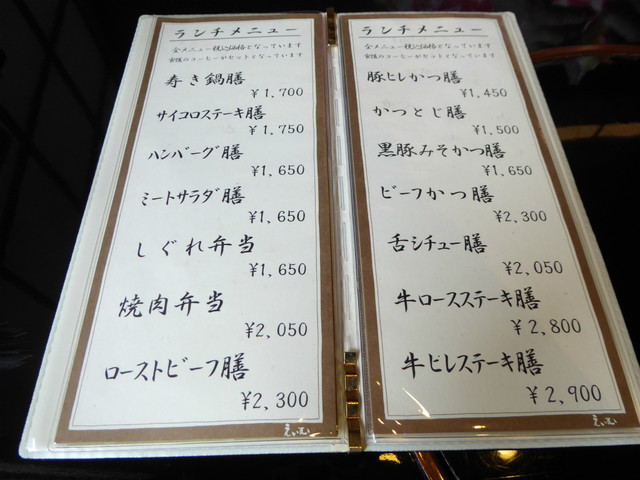 ランチメニュー
全メニュー税込価格となっています
食後のコーヒーがセットとなっています
寿き鍋膳
¥1,700
サイコロステーキ膳
¥1,750
ハンバーグ膳
¥1,650
ミートサラダ膳
¥1,650
しぐれ弁当
¥1,650
焼肉弁当
¥2,050
ローストビーフ膳
¥2,300
ランチメニュー
全メニュー税込価格となっています
食後のコーヒーがセットとなっています
豚ヒレかつ膳
¥1,450
かつとじ膳
¥1,500
黒豚みそかつ膳
¥1,650
ビーフかつ膳
¥2,300
舌シチュー膳
¥2,050
牛ロースステーキ膳
¥2,800
牛ヒレステーキ膳
¥2,900